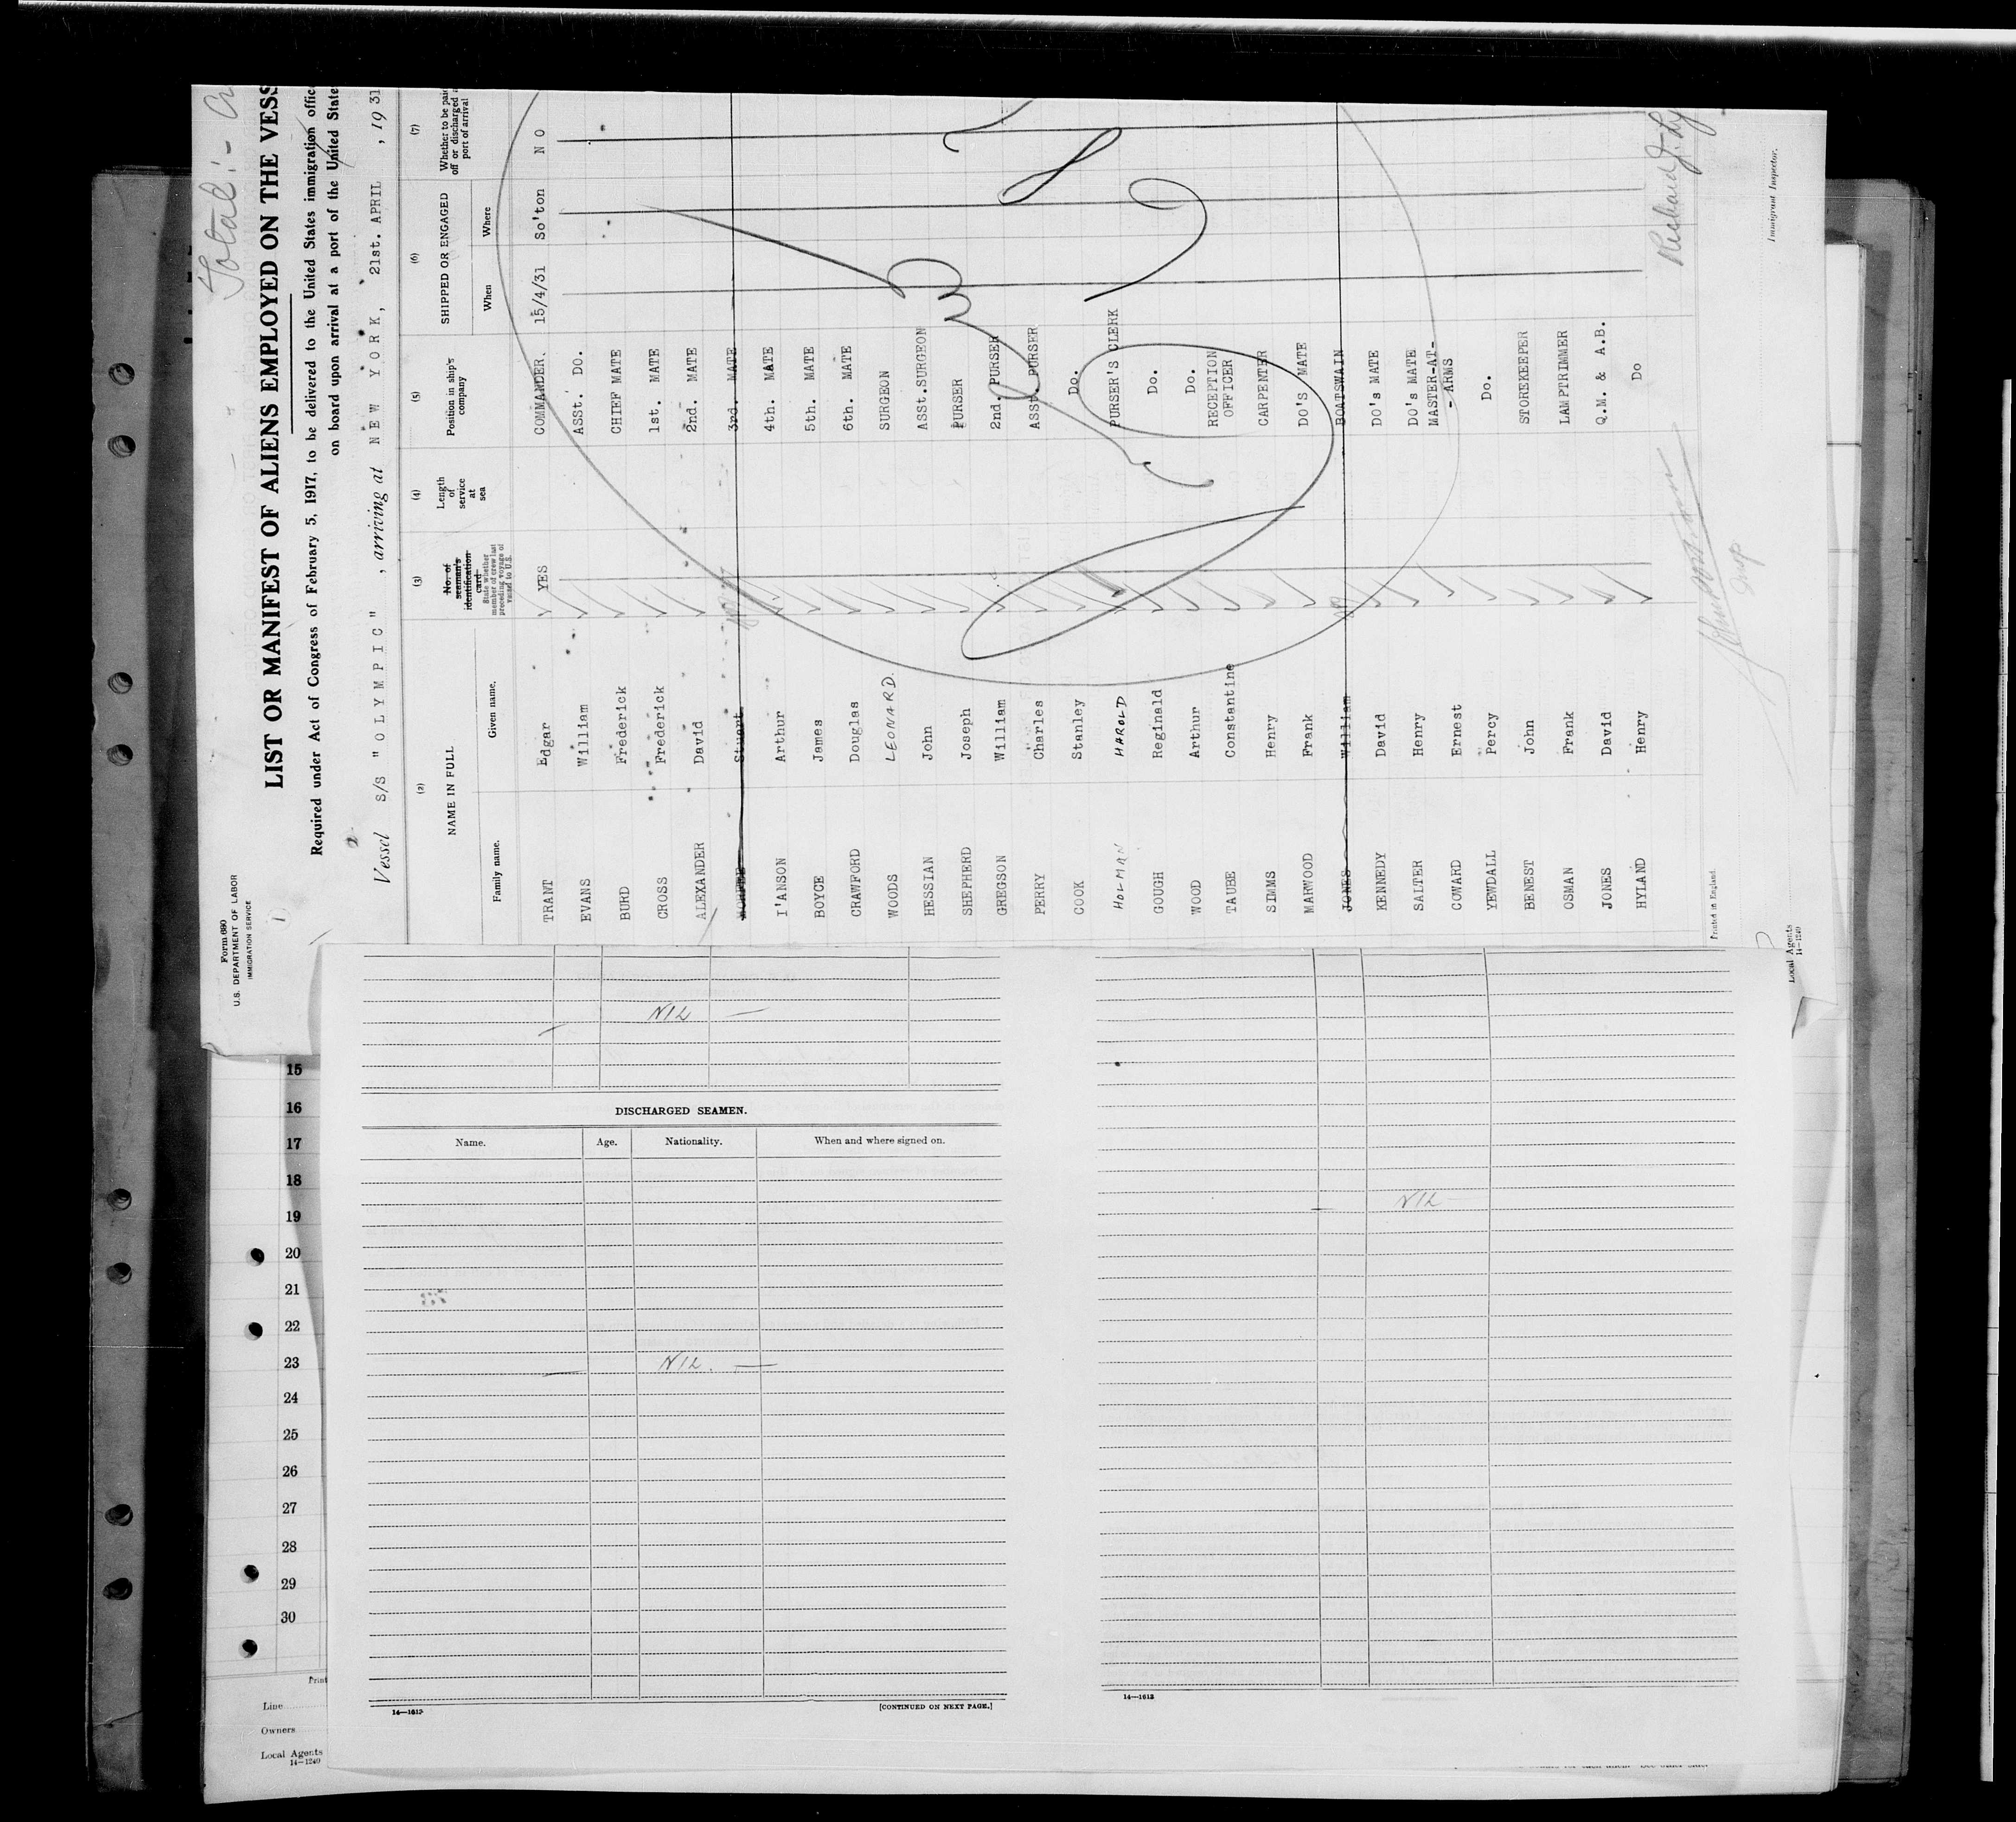 Form 680
U.S. DEPARTMENT OF LABOR
IMMIGRATION SERVICE
Total:-
LIST OR MANIFEST OF ALIENS EMPLOYED ON THE VESS
Required under Act of Congress of February 5, 1917, to be delivered to the United States immigration offic
on board upon arrival at a port of the United State
Vessel S/S "OLYMPIC" , arriving at NEW YORK, 21st. APRIL , 1931
(2) (3) (4) (5) (6) (7)
NAME IN FULL
Family name. Given name.
No. of seaman's identification card
State whether member of crew last preceding voyage of vessel to U.S.
Length of service at sea
Position in ship's company
SHIPPED OR ENGAGED
When Where
Whether to be paid off or discharged a port of arrival
TRANT Edgar YES COMMANDER. 15/4/31 So'ton NO
EVANS William ASSt. DO.
BURD Frederick CHIEF MATE
CROSS Frederick 1st. MATE
ALEXANDER David 2nd. MATE
Stuart 3rd. MATE
I'ANSON Arthur 4th. MATE
BOYCE James 5th. MATE
CRAWFORD Douglas 6th. MATE
WOODS LEONARD. SURGEON
HESSIAN John ASSt.SURGEON
SHEPHERD Joseph PURSER
GREGSON William 2nd. PURSER
PERRY Charles ASSt. PURSER
COOK Stanley Do.
HOLMAN HAROLD PURSER'S CLERK
GOUGH Reginald Do.
WOOD Arthur Do.
TAUBE Constantine RECEPTION OFFICER
SIMMS Henry CARPENTER
MARWOOD Frank DO'S MATE
JONES William BOATSWAIN
KENNEDY David DO's MATE
SALTER Henry DO's MATE
COWARD Ernest MASTER-AT-
- ARMS
YEWDALL Percy Do.
BENEST John STOREKEEPER
OSMAN Frank LAMPTRIMMER
JONES David Q.M. & A.B.
HYLAND Henry Do
Printed in England.
Richard J.
Immigrant Inspector.
Insp
Local Agents
14-1249
NIL
DISCHARGED SEAMEN.
Name. Age. Nationality. When and where signed on.
NIL.
14—1613
[CONTINUED ON NEXT PAGE.]
NIL
14—1613
15
16
17
18
19
20
21
22
23
24
25
26
27
28
29
30
Print
Line
Owners
Local Agents
14-1249